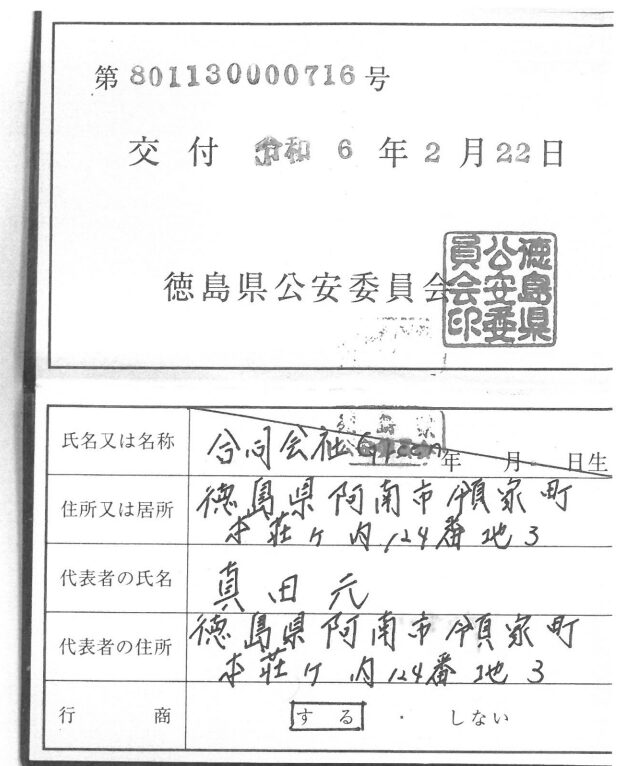 第 801130000716 号
交付 令和 6 年 2 月 22 日
徳島県公安委員会
徳島県
公安委
員会印
氏名又は名称
合同会社Green
年 月 日生
住所又は居所
徳島県阿南市領家町
本荘ケ内124番地3
代表者の氏名
真田元
代表者の住所
徳島県阿南市領家町
本荘ケ内124番地3
行商
する ・ しない